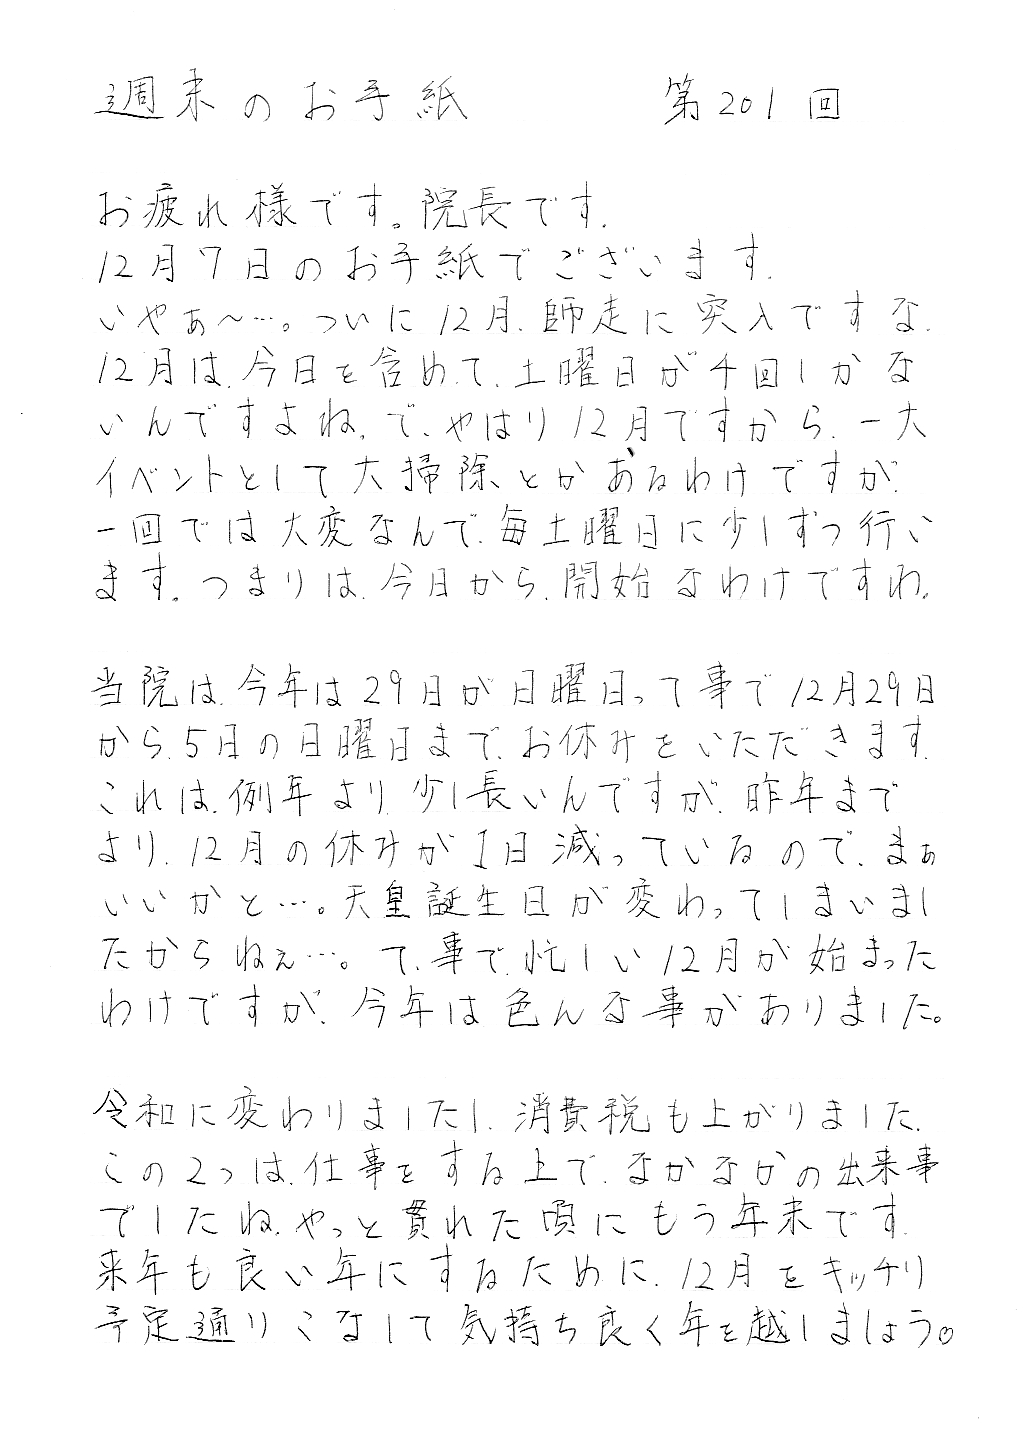 週末のお手紙 第201回
お疲れ様です。院長です.
12月7日のお手紙でございます.
いやぁ〜…。ついに12月.師走に突入ですな.
12月は.今日を含めて.土曜日が4回しかな
いんですよね.で.やはり12月ですから.一大
イベントとして大掃除、とかあるわけですが.
一回では大変なんで.毎土曜日に少しずつ行い
ます。つまりは.今日から.開始なわけですわ。
当院は.今年は29日が日曜日って事で12月29日
から.5日の日曜日まで.お休みをいただきます.
これは.例年より.少し長いんですが.昨年まで
より.12月の休みが1日減っているので.まぁ
いいかと…。天皇誕生日が変わってしまいまし
たからねぇ…。て.事で.忙しい12月が始まった
わけですが.今年は色んな事がありました。
令和に変わりましたし.消費税も上がりました.
この2つは.仕事をする上で.なかなかの出来事
でしたね.やっと貫れた頃にもう年末です.
来年も良い年にするために.12月をキッチリ
予定通りこなして気持ち良く年を越しましょう。